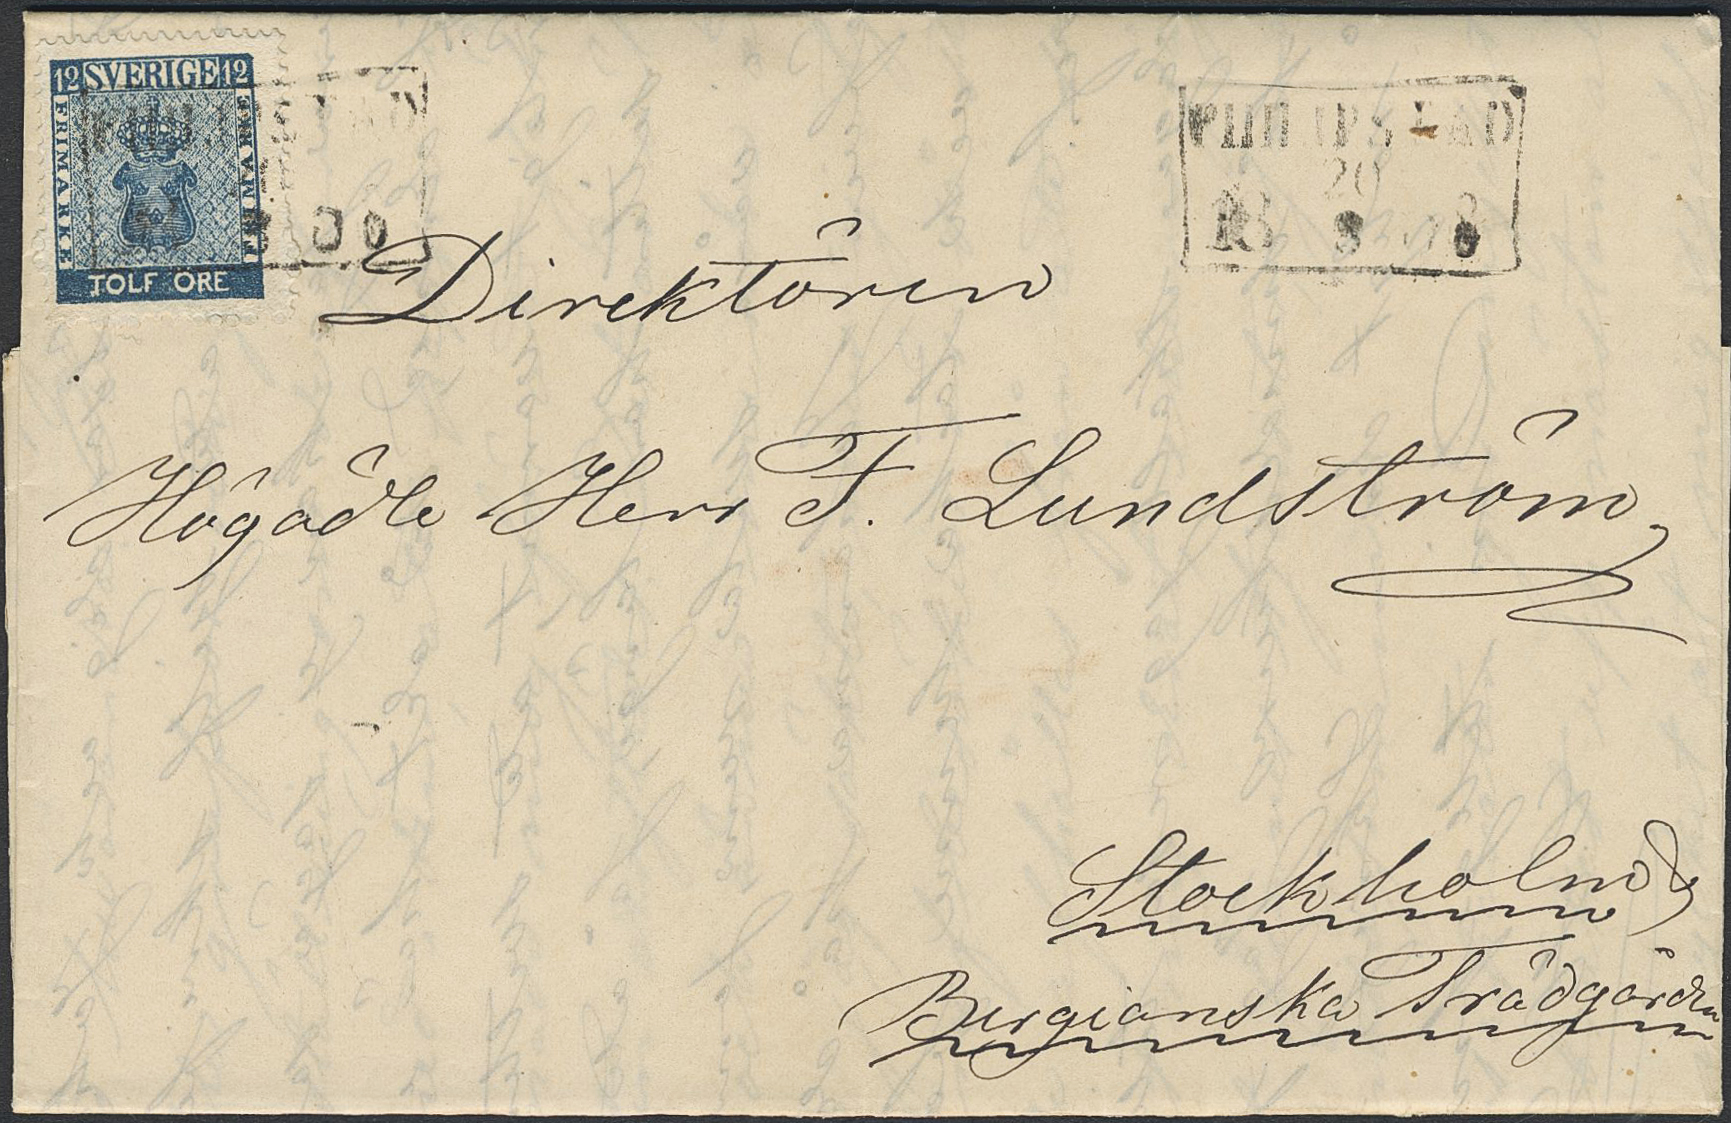 12 SVERIGE 12
FRIMÄRKE
FRIMÄRKE
TOLF ÖRE
PHILIPSTAD
20
18 8
Direktören
Högädle Herr F. Lundström,
Stockholm &
Bergianska Trädgården